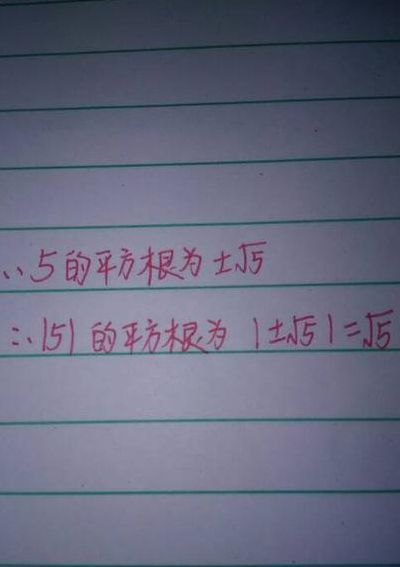 ∵5的平方根为±√5
∴|5|的平方根为 |±√5|=√5